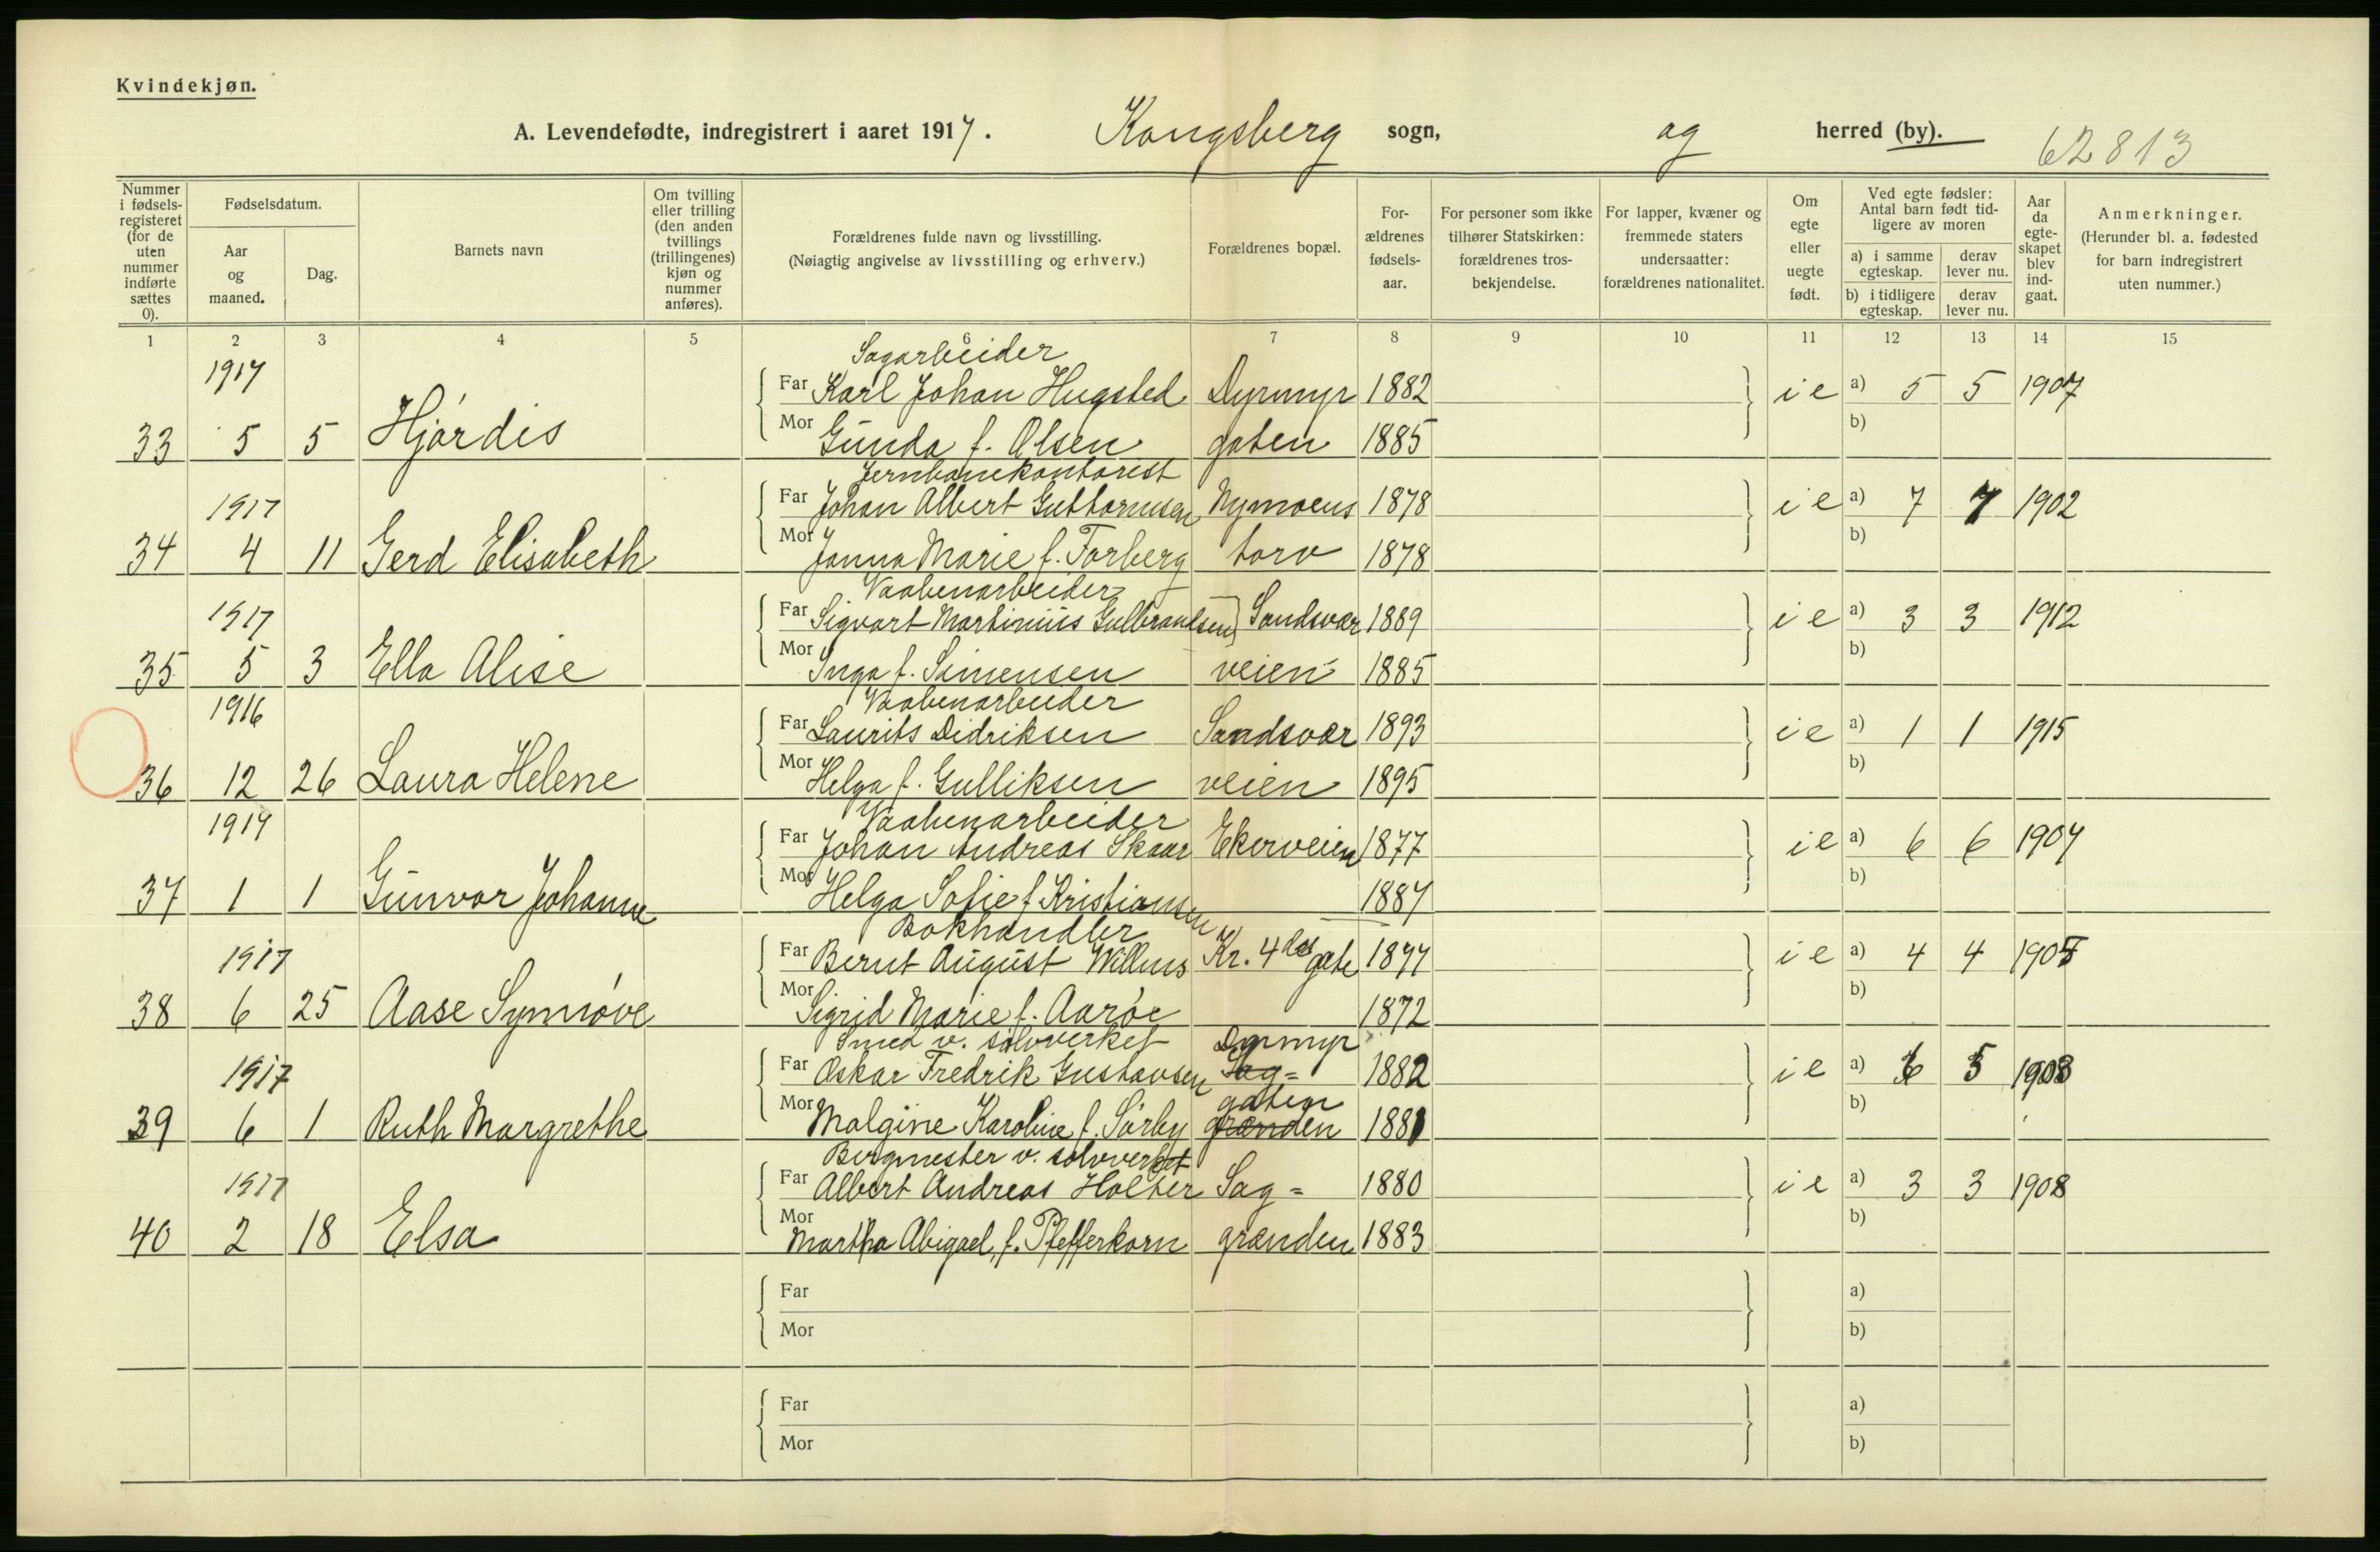 Kvindekjøn.
A. Levendefødte, indregistrert i aaret 1917. Kongsberg sogn, og herred (by). 62813
Nummer i fødsels-registeret (for de uten nummer indførte sættes 0).
Fødselsdatum.
Aar og maaned.
Dag.
Barnets navn
Om tvilling eller trilling (den anden tvillings (trillingenes) kjøn og nummer anføres).
Forældrenes fulde navn og livsstilling.
(Nøiagtig angivelse av livsstilling og erhverv.)
Forældrenes bopæl.
For-ældrenes fødsels-aar.
For personer som ikke tilhører Statskirken: forældrenes tros-bekjendelse.
For lapper, kvæner og fremmede staters undersaatter: forældrenes nationalitet.
Om egte eller uegte født.
Ved egte fødsler: Antal barn født tid-ligere av moren
a) i samme egteskap. derav lever nu.
b) i tidligere egteskap. derav lever nu.
Aar da egte-skapet blev ind-gaat.
Anmerkninger.
(Herunder bl. a. fødested for barn indregistrert uten nummer.)
1 2 3 4 5 6 7 8 9 10 11 12 13 14 15
1917 Sagarbeider
Far Karl Johan Hugsted Dyrmyr 1882 ie a) 5 5 1907
33 5 5 Hjørdis Mor Gunda f. Olsen gaten 1885 b)
Jernbanekontorist
1917 Far Johan Albert Guttormsen Nymoens 1878 ie a) 7 7 1902
34 4 11 Gerd Elisabeth Mor Janna Marie f. Forberg torv 1878 b)
Vaabenarbeider
1917 Far Sigvart Martinius Gulbrandsen Sandsvær 1889 ie a) 3 3 1912
35 5 3 Ella Alise Mor Inga f. Simensen veien 1885 b)
1916 Vaabenarbeider
Far Laurits Didriksen Sandsvær 1893 ie a) 1 1 1915
36 12 26 Laura Helene Mor Helga f. Gulliksen veien 1895 b)
1917 Vaabenarbeider
Far Johan Andreas Skaar Ekerveien 1877 ie a) 6 6 1907
37 1 1 Gunvor Johanne Mor Helga Sofie f. Kristiansen 1887 b)
Bokhandler
1917 Far Bernt August Willms Kr. 4des gate 1877 ie a) 4 4 1905
38 6 25 Aase Synnøve Mor Sigrid Marie f. Aarøe 1872 b)
Smed v. sølvverket Dyrmyr
1917 Far Oskar Fredrik Gustavsen Sag= 1882 ie a) 6 5 1908
gaten
39 6 1 Ruth Margrethe Mor Malgine Karoline f. Sørby grænden 1881 b)
Bergmester v. sølvverket
1917 Far Albert Andreas Holter Sag= 1880 ie a) 3 3 1908
40 2 18 Elsa Mor Martha Abigael, f. Pfefferkorn grænden 1883 b)
Far a)
Mor b)
Far a)
Mor b)